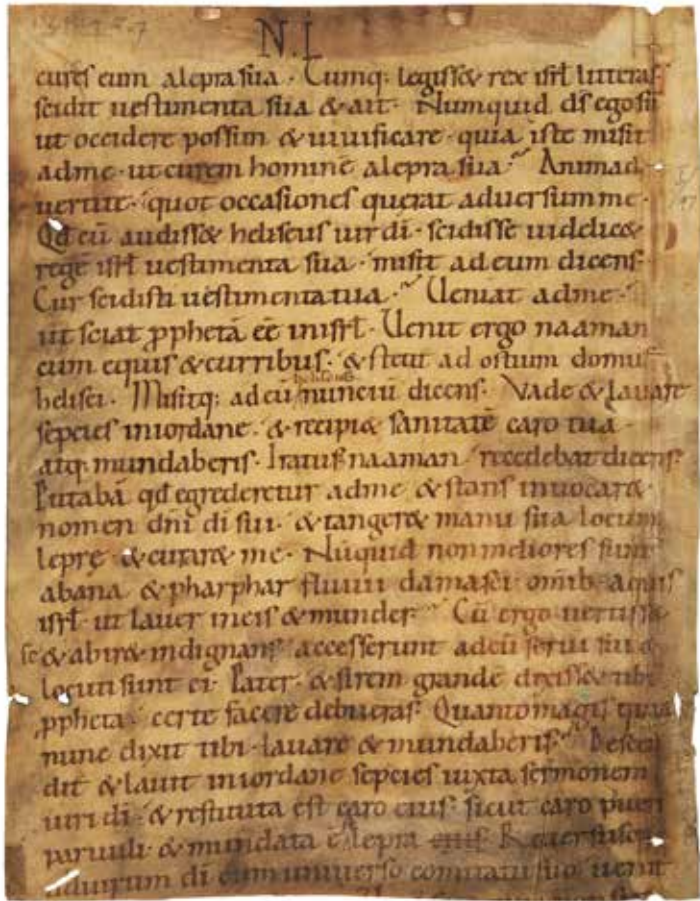 N. L
cures eum alepra sua · Cumq; legiss& rex isrł litteras
scidit uestimenta sua & ait · Numquid dš ego sū
ut occidere possim & uiuificare · quia iste misit
adme · ut curem hominē alepra sua · Animad
uertite · quot occasiones querat aduersum me ·
Qd cū audiss& heliseus uir dī · scidisse uidelic&
regē isrł uestimenta sua · misit ad eum dicens ·
Cur scidisti uestimenta tua · Ueniat adme ·
ut sciat pph&ā eē inisrł · Uenit ergo naaman
cum equis & curribus · & stetit ad ostium domus
helisei · Misitq; ad eū heliseus nunciū dicens · Vade & lauare
sepcies iniordane · & recipi& sanitatē caro tua ·
atq; mundaberis · Iratus naaman recedebat dicens ·
Putabā qd egrederetur adme & stans inuocar&
nomen dnī dī sui · & tanger& manu sua locum
leprę · & curar& me · Nūquid non meliores sunt
abana & pharphar fluuii damasci omīb; aquis
isrł · ut lauer in eis & munder · Cū ergo uertiss&
se & abir& indignans accesserunt adeū serui sui &
locuti sunt ei · Pater · & si rem grandē dixiss& tibi
ppheta · certe facere debueras · Quanto magis quia
nunc dixit tibi · lauare & mundaberis · Descen
dit & lauit iniordane sepcies iuxta sermonem
uiri dī · & restituta est caro eius · sicut caro pueri
paruuli · & mundata ē lepra eius · Reuersusq;
aduirum dī cum uniuerso comitatu suo uenit